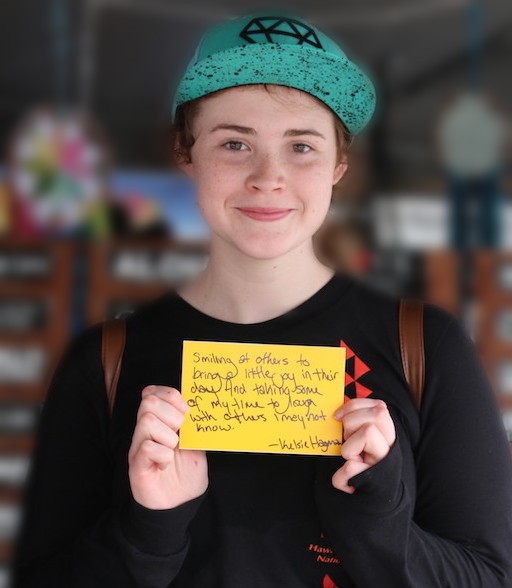 Smiling at others to
bring a little joy in their
day. And taking some
of my time to laugh
with others I may not
know.
- Kelsie Hagma
Haw
Natio